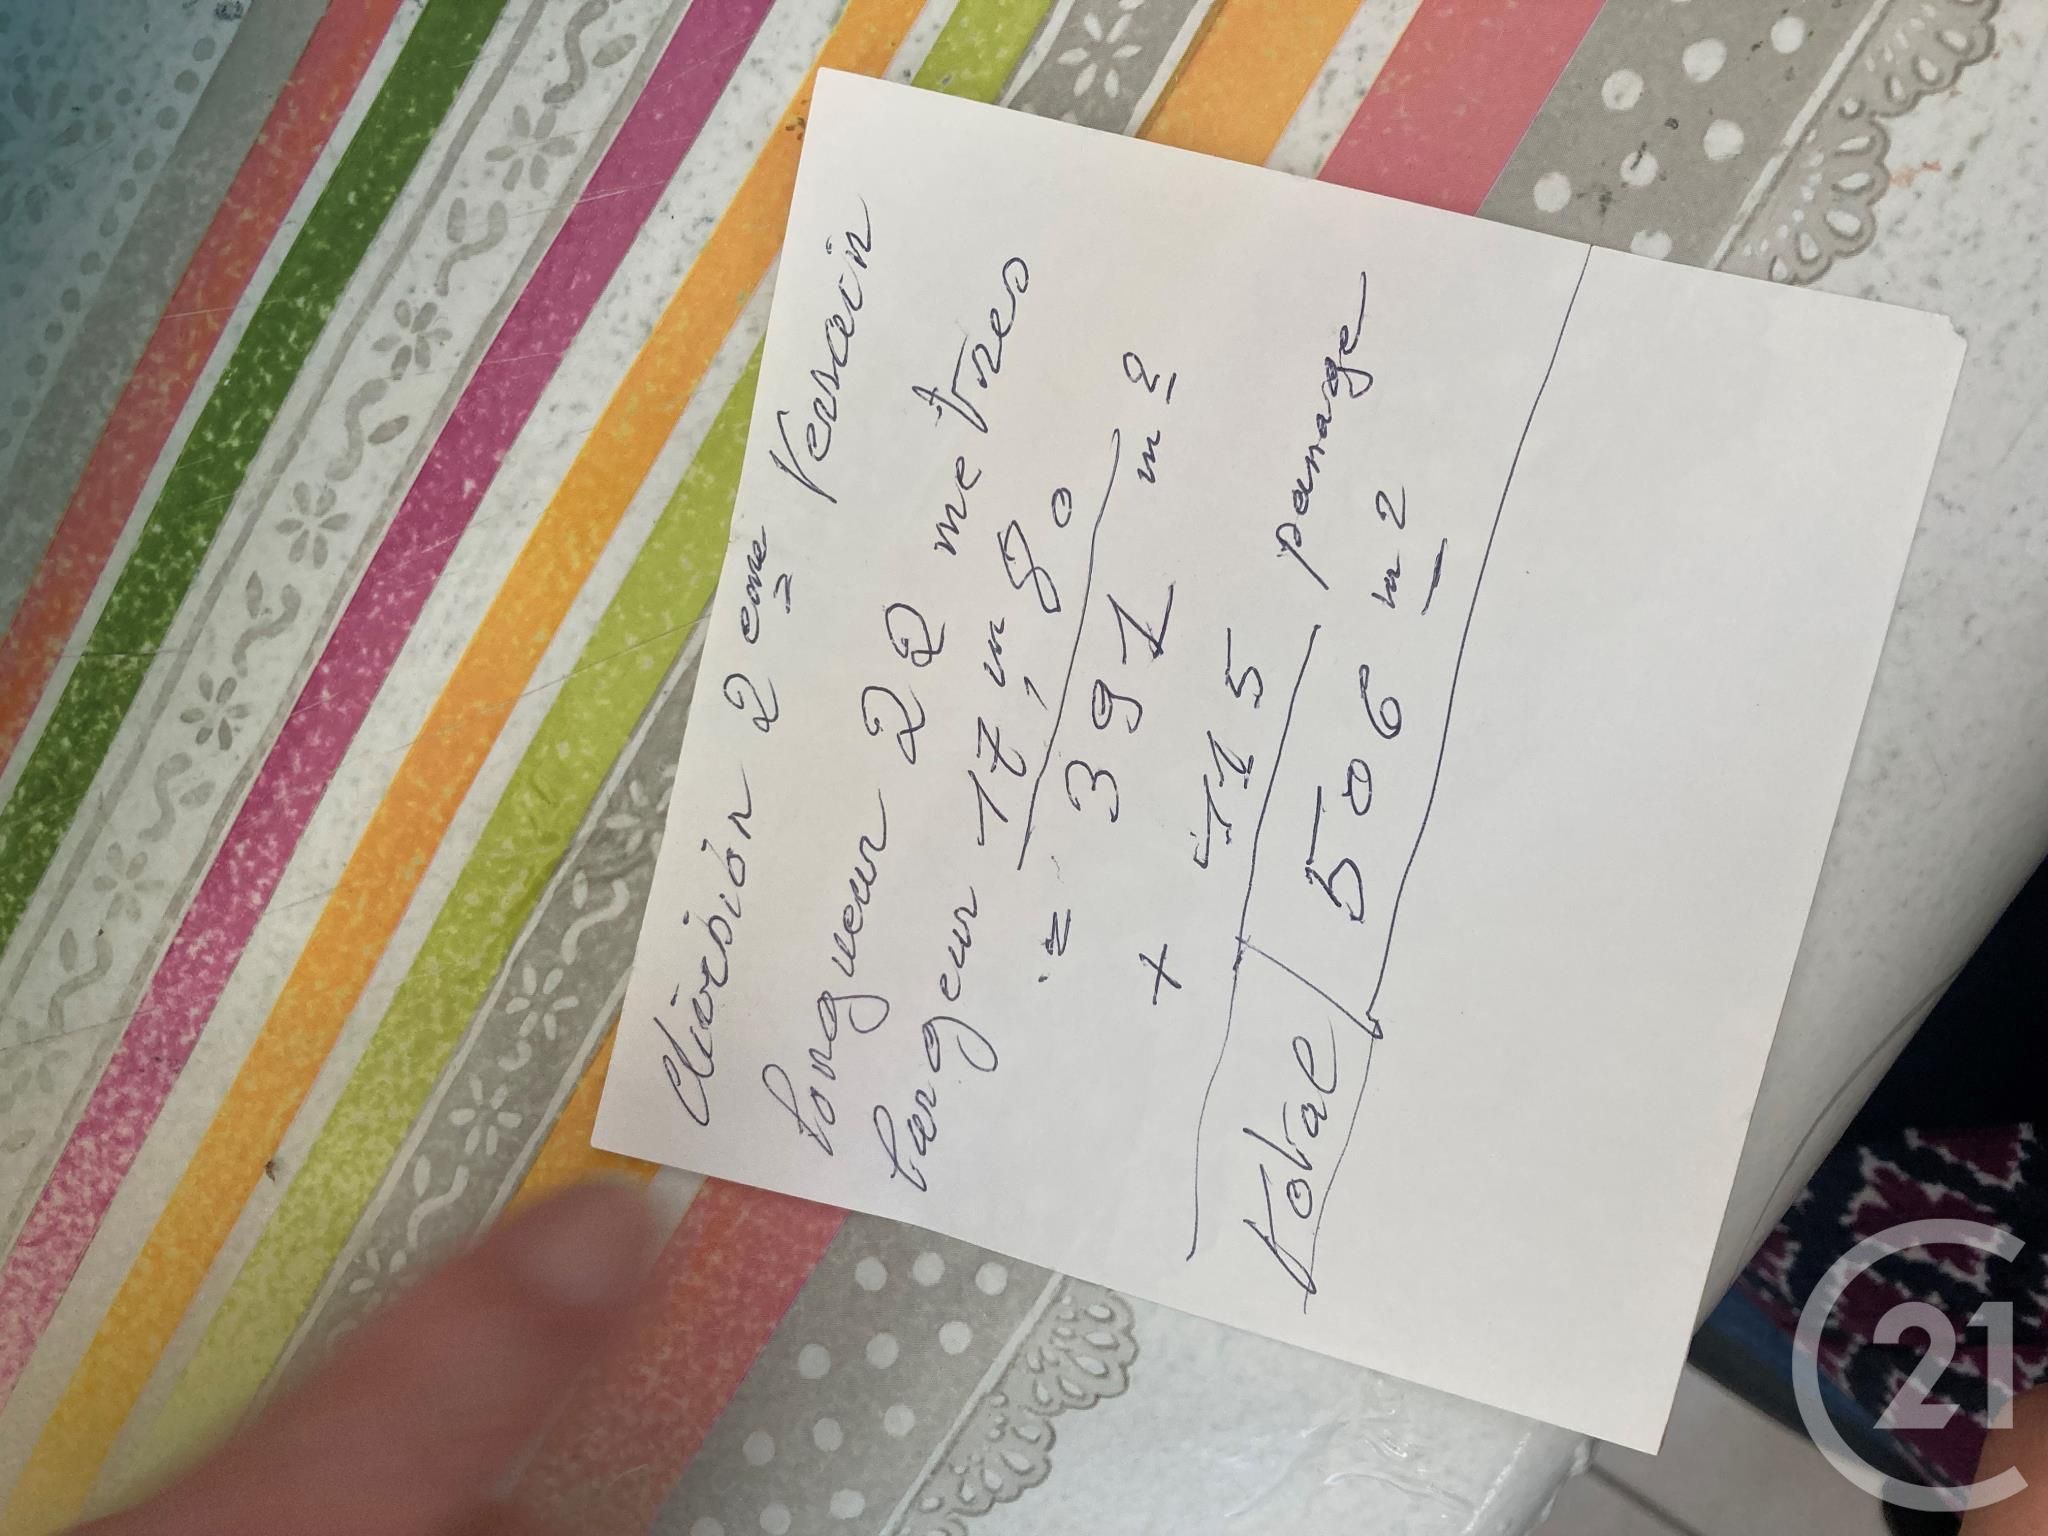 division 2 eme Versain
Longueur 22 metres
Largeur 17, m 80
= 391 m2
+ 115 pamage
Total 506 m2
C21